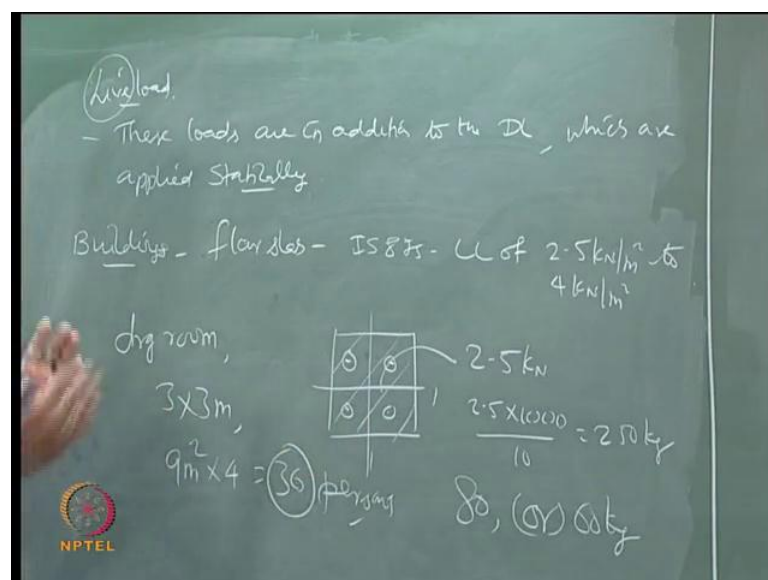 Live load.
- These loads are in addition to the DL, which are
applied statically
Buildings - floor slabs - IS 875 - LL of 2.5 kN/m² to
4 kN/m²
drg room,
3x3m,
9m² x 4 = 36 persons
2.5 kN
2.5 x 1000 / 10 = 250 kg
80, (or) 60 kg
NPTEL